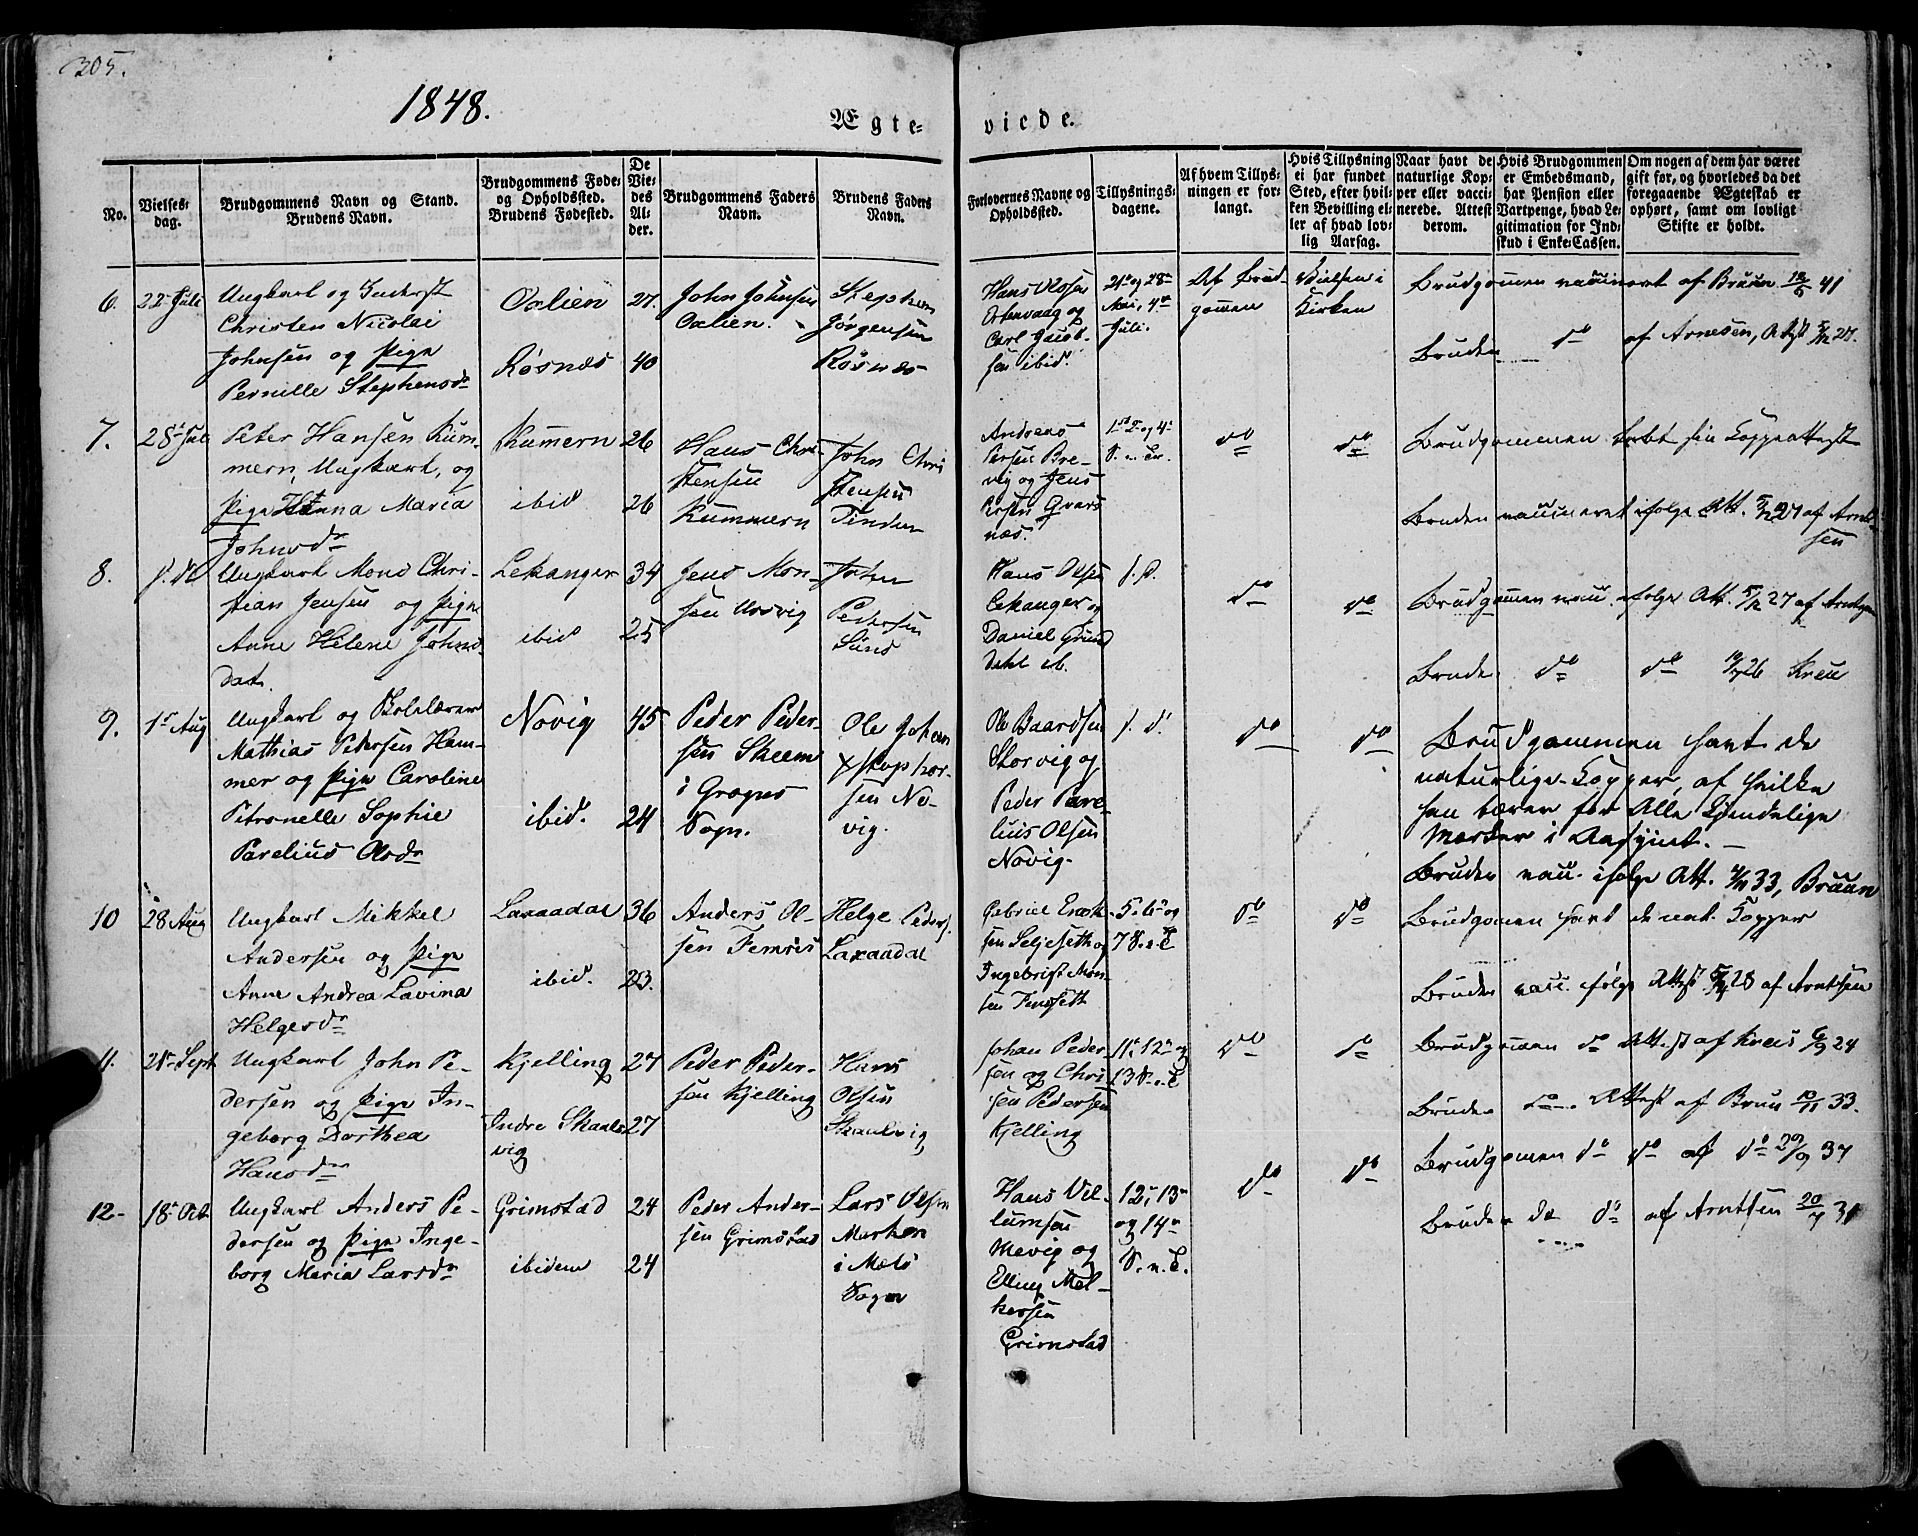 305.
1848.
Ægte-
viede.
No.
Vielses-
dag.
Brudgommens Navn og Stand.
Brudens Navn.
Brudgommens Føde-
og Opholdssted.
Brudens Fødested.
De
Vie-
des
Al-
der.
Brudgommens Faders
Navn.
Brudens Faders
Navn.
Forlovernes Navne og
Opholdssted.
Tillysnings-
dagene.
Af hvem Tillys-
ningen er for-
langt.
Hvis Tillysning
ei har fundet
Sted, efter hvil-
ken Bevilling el-
ler af hvad lov-
lig Aarsag.
Naar havt de
naturlige Kop-
per eller vacci-
nerede. Attest
derom.
Hvis Brudgommen
er Embedsmand,
har Pension eller
Vartpenge, hvad Le-
gitimation for Ind-
skud i Enke-Cassen.
Om nogen af dem har været
gift før, og hvorledes da det
foregaaende Ægteskab er
ophørt, samt om lovligt
Skifte er holdt.
6.
22 Juli
Ungkarl og Inderst
Christen Nicolai
Johnsen og Pige
Pernille Stephensdr
Oxlien
Røsnæs
27.
40
John Johnsen
Oxlien.
Stephen
Jørgensen
Røsnæs
Hans Olsen
og
Carl Jacob-
sen ibid.
21de og 28de
Mai, 4de
Juli.
Af Brud-
gommen
Vielsen i
Kirken
Brudgommen vaccineret af Bruun 41
Bruden do af Arnesen, Attest 27.
7.
28 Juli
Peter Hansen Kum-
mern, Ungkarl, og
Pige Hanna Maria
Johnsdr
Kumern
ibid
26
26
Hans Chri-
stensen
Kummern
John Chri
stensen
Tinden
Andreas
Persen Bre-
vig og Jens
Persen
næs.
1ste 2 og 4de
S. n. Tr.
do
do
Brudgommen tabt sin Koppeattest
Bruden vaccineret ifølge Att. 27 af Arnt-
sen
8.
s. d.
Ungkarl Mons Chri-
stian Jensen og Pige
Anne Helene Johns-
dat.
Lekanger
ibid
34
25
Jens Mon-
sen
John
Pedersen
Sund
Hans Olsen
Lekanger og
Daniel Grund
ib.
s. d.
do
do
Brudgommen vacc. ifølge Att. 5/12 27 af Arntsen
Bruden do do 26
9.
1ste Aug
Ungkarl og Skolelærer
Mathias Pedersen Ham-
mer og Pige Caroline
Petronelle Sophie
Parelius Olsdr
Novig
ibid.
45
24
Peder Peder-
sen Skeem
i Grognes
Sogn.
Ole Johan
Xstophor-
sen No-
vig.
Ole Baardsen
Storvig og
Peder Pare-
lius Olsen
Novig.
s. d.
do
do
Brudgommen havt de
naturlige Kopper, af hvilke
han bærer for Alle kjendelige
Mærker i Ansigtet.
Bruden vacc. ifølge Att. 33, Bruun
10
28 Aug
Ungkarl Mikkel
Andersen og Pige
Anne Andrea Lavina
Helgesdr
Laxaadal
ibid.
36
23.
Anders Ol-
sen Femris
Helge Peders.
Laxaadal
Gabriel Enok-
sen Seljeseth og
Ingebrigt Mon-
sen
5. 6te og
7 S. n. T
do
do
Brudgommen havt de nat. Kopper
Bruden vacc. ifølge Attest 28 af Arntsen
11.
28 Sept
Ungkarl John Pe-
dersen og Pige In-
geborg Dorthea
Hansdr
Kjelling
Indre Skaals-
vig
27
27
Peder Peder-
sen Kjelling
Hans
Olsen
Skaalsvig
Johan Peder-
sen og Chri
sen Pedersen
Kjelling
11te 12te og
13 S. n. T
do
do
Brudgommen do Attest af 24
Bruden do Attest af Bruun 33.
12
18 Oct
Ungkarl Anders Pe-
dersen og Pige Inge-
borg Maria Larsdr
Grimstad
ibidem
24
24
Peder Ander-
sen Grimstad
Lars Olsen
Marken
i Mælø
Sogn
Hans Vil-
lumsen
Mevig og
Elling Mel-
kersen
Grimstad
12, 13
og 14de
S. n. T.
do
do
Brudgommen do do af do 29/9 37
Bruden do do af Arntsen 31